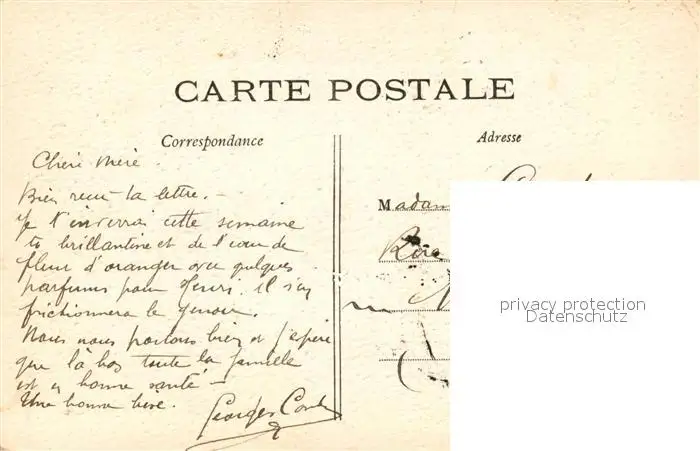 CARTE POSTALE
Correspondance
Adresse
Chère mère.
Bien reçu ta lettre. -
Je t'enverrai cette semaine
ta brillantine et de l'eau de
fleur d'oranger avec quelques
parfums pour Henri. Il s'en
frictionnera le genou.
Nous nous portons bien et j'espère
que là bas toute la famille
est en bonne santé -
Une bonne bise.
Georges
Madam
Rue
privacy protection
Datenschutz